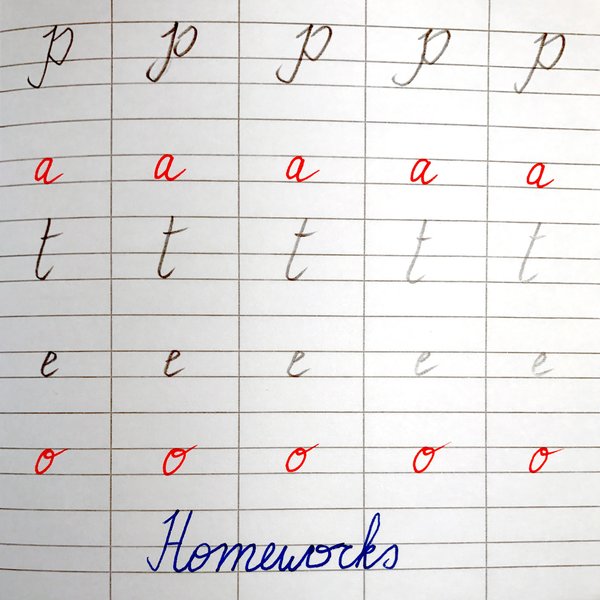 p p p p p
a a a a a
t t t t t
e e e e e
o o o o o
Homeworks